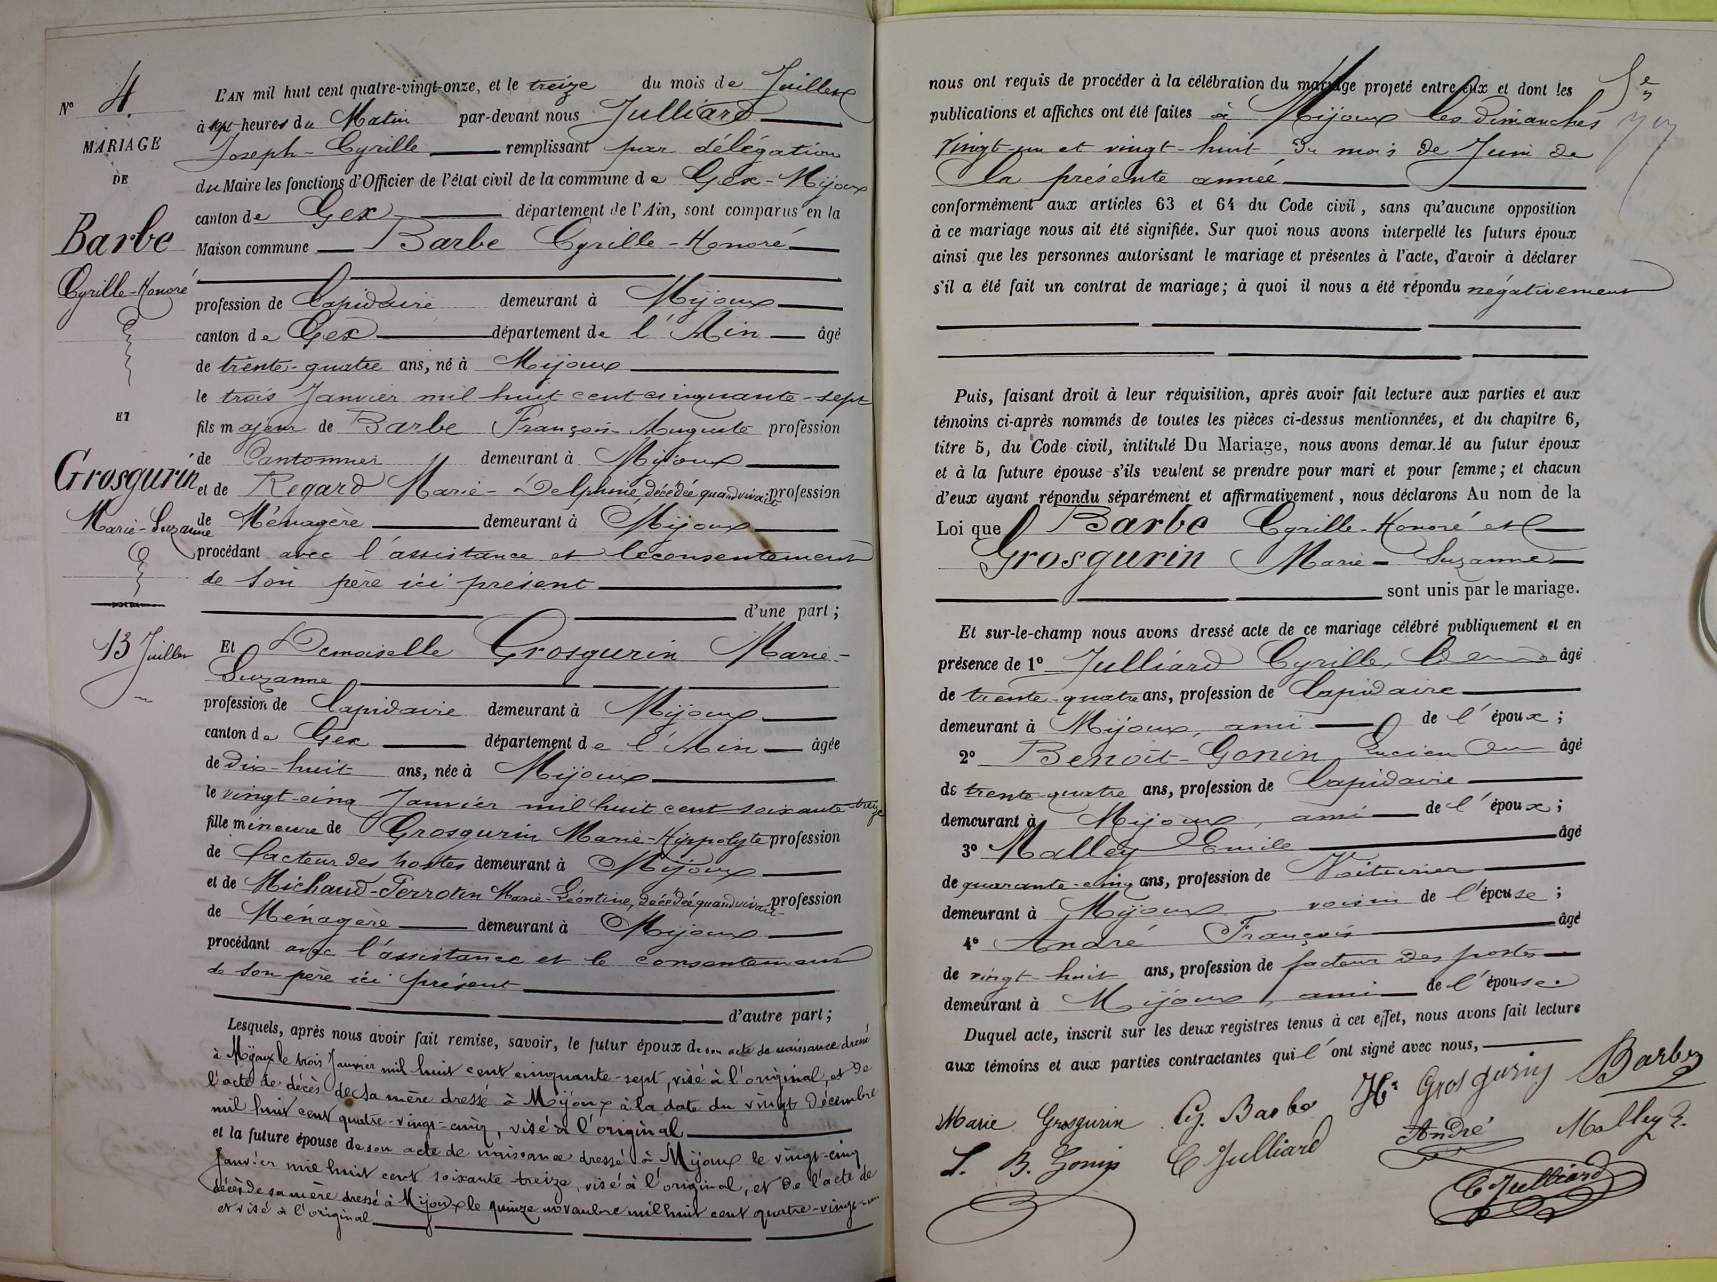 N° 4.
MARIAGE
DE
Barbe
Cyrille-Honoré
ET
Grosgurin
Marie-Suzanne
13 Juillet
L'AN mil huit cent quatre-vingt-onze, et le treize du mois de Juillet
à sept heures du Matin par-devant nous Julliard
Joseph-Cyrille remplissant par délégation
du Maire les fonctions d'Officier de l'état civil de la commune de Gex-Mijoux
canton de Gex département de l'Ain, sont comparus en la
Maison commune Barbe Cyrille-Honoré
profession de Lapidaire demeurant à Mijoux
canton de Gex département de l'Ain âgé
de trente-quatre ans, né à Mijoux
le trois Janvier mil huit cent cinquante-sept
fils majeur de Barbe François-Auguste profession
de Cantonnier demeurant à Mijoux
et de Regard Marie-Delphine, décédée quand vivait profession
de Ménagère demeurant à Mijoux
procédant avec l'assistance et le consentement
de son père ici présent
d'une part;
Et Demoiselle Grosgurin Marie-
Suzanne
profession de Lapidaire demeurant à Mijoux
canton de Gex département de l'Ain âgée
de dix-huit ans, née à Mijoux
le vingt-cinq Janvier mil huit cent soixante-treize
fille mineure de Grosgurin Marie-Hippolyte profession
de facteur des postes demeurant à Mijoux
et de Michaud-Perrotin Marie-Léontine, décédée quand vivait profession
de Ménagère demeurant à Mijoux
procédant avec l'assistance et le consentement
de son père ici présent
d'autre part;
Lesquels, après nous avoir fait remise, savoir, le futur époux de son acte de naissance dressé
à Mijoux le trois Janvier mil huit cent cinquante-sept, visé à l'original, et de
l'acte de décès de sa mère dressé à Mijoux à la date du vingt Décembre
mil huit cent quatre-vingt-cinq, visé à l'original
et la future épouse de son acte de naissance dressé à Mijoux le vingt-cinq
Janvier mil huit cent soixante treize, visé à l'original, et de l'acte de
décès de sa mère dressé à Mijoux le quinze novembre mil huit cent quatre-vingt-
et visé à l'original
nous ont requis de procéder à la célébration du mariage projeté entre eux et dont les
publications et affiches ont été faites à Mijoux les dimanches
vingt-un et vingt-huit du mois de Juin de
la présente année
conformément aux articles 63 et 64 du Code civil, sans qu'aucune opposition
à ce mariage nous ait été signifiée. Sur quoi nous avons interpellé les futurs époux
ainsi que les personnes autorisant le mariage et présentes à l'acte, d'avoir à déclarer
s'il a été fait un contrat de mariage; à quoi il nous a été répondu négativement
Puis, faisant droit à leur réquisition, après avoir fait lecture aux parties et aux
témoins ci-après nommés de toutes les pièces ci-dessus mentionnées, et du chapitre 6,
titre 5, du Code civil, intitulé Du Mariage, nous avons demandé au futur époux
et à la future épouse s'ils veulent se prendre pour mari et pour femme; et chacun
d'eux ayant répondu séparément et affirmativement, nous déclarons Au nom de la
Loi que Barbe Cyrille-Honoré et
Grosgurin Marie-Suzanne
sont unis par le mariage.
Et sur-le-champ nous avons dressé acte de ce mariage célébré publiquement et en
présence de 1° Julliard Cyrille âgé
de trente-quatre ans, profession de Lapidaire
demeurant à Mijoux, ami de l'époux;
2° Benoît-Gonin Lucien âgé
de trente-quatre ans, profession de Lapidaire
demeurant à Mijoux, ami de l'époux;
3° Malley Emile âgé
de quarante-cinq ans, profession de Voiturier
demeurant à Mijoux, voisin de l'épouse;
4° André François âgé
de vingt-huit ans, profession de facteur des postes
demeurant à Mijoux, ami de l'épouse.
Duquel acte, inscrit sur les deux registres tenus à cet effet, nous avons fait lecture
aux témoins et aux parties contractantes qui l'ont signé avec nous,
Marie Grosgurin Cy. Barbe Hte Grosgurin Barbe
L. B. Gonin C Julliard André Malley E.
C. Julliard